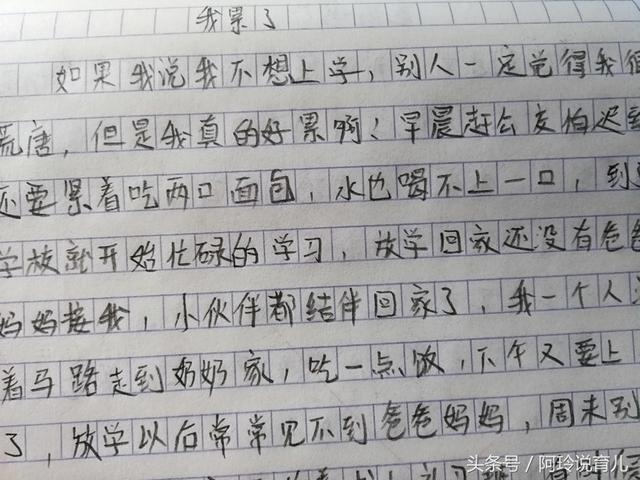 我累了
如果我说我不想上学，别人一定觉得我很
荒唐，但是我真的好累啊！早晨赶公交怕迟到
还要累着吃两口面包，水也喝不上一口，到
学校就开始忙碌的学习，放学回家还没有爸爸
妈妈接我，小伙伴都结伴回家了，我一个人
着马路走到奶奶家，吃一点饭，下午又要上
了，放学以后常常见不到爸爸妈妈，周末别
头条号/阿玲说育儿